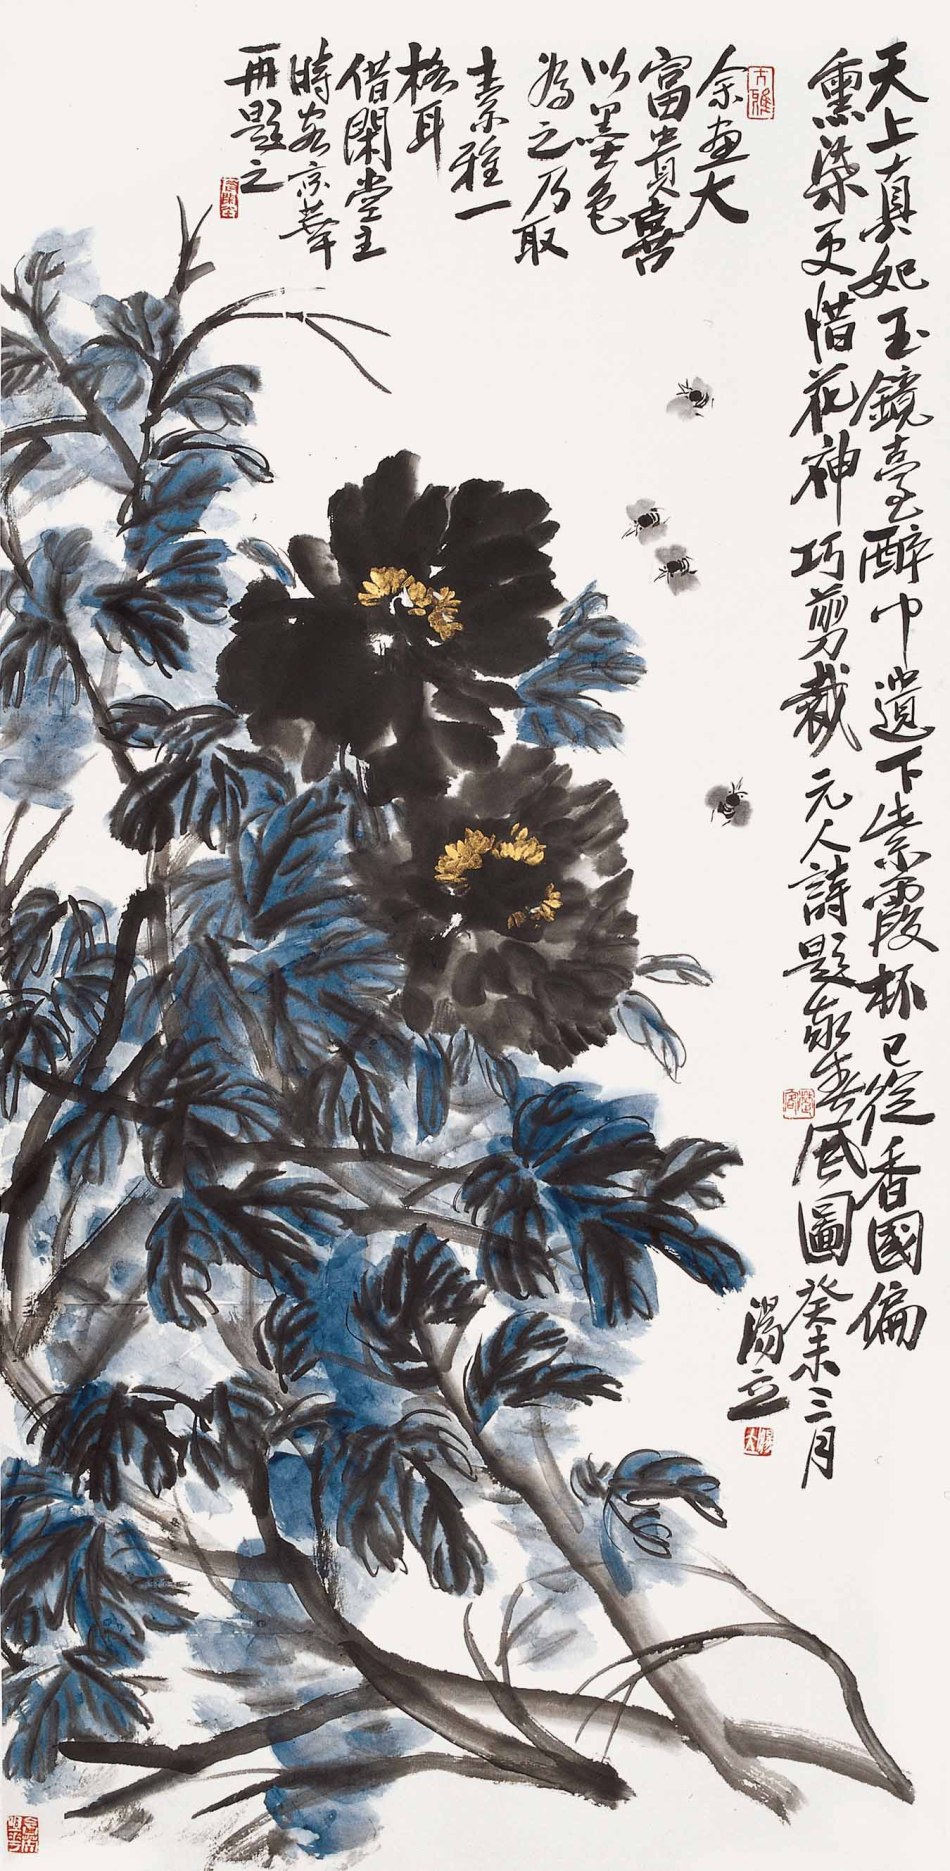 天上真妃玉鏡臺醉中遺下紫霞杯已從香國偏
熏染更惜花神巧剪裁 元人詩題春風圖 癸未二月
湯立
余畫大
富貴喜
以墨色
為之乃取
素雅一
格耳
借閑堂主
時客京華
再題之